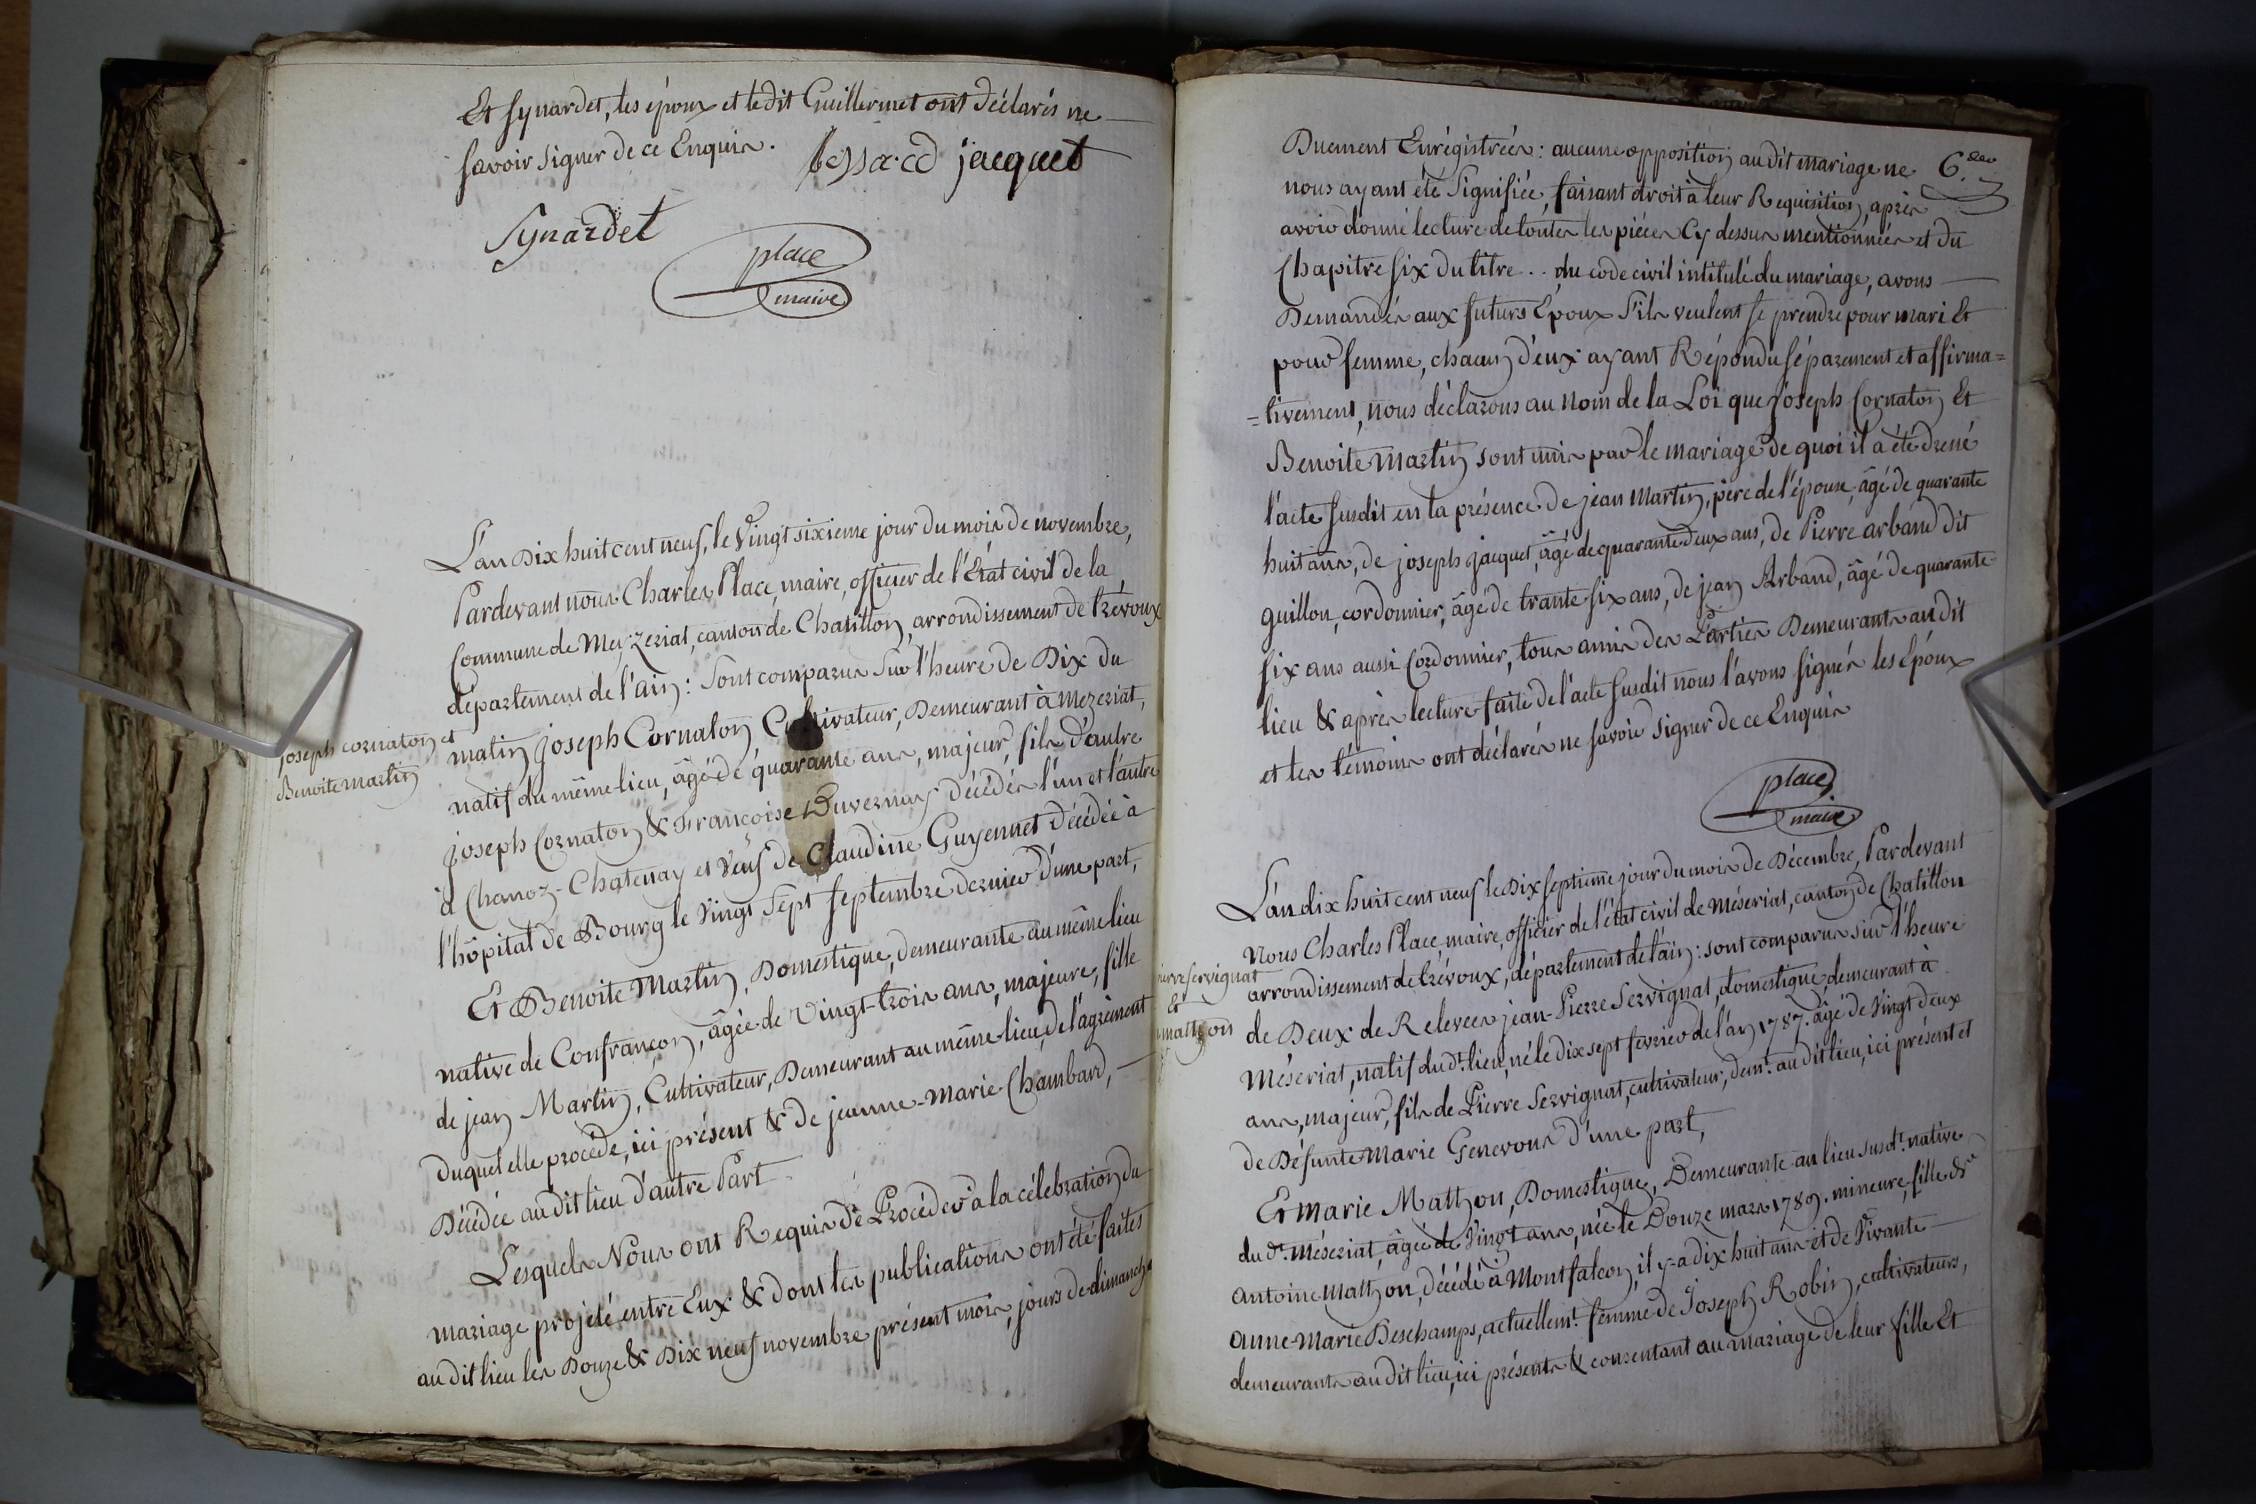 Et Synardet, les époux et le dit Guillermet ont déclarés ne
savoir signer de ce Enquis.
jacquet
Synardet
place
maire
L'an Dix huit cent neuf, le Vingt sixieme jour du mois de novembre,
Pardevant nous Charles Place, maire, officier de l'Etat civil de la
Commune de Meyzeriat, canton de Chatillon, arrondissement de trévoux
département de l'ain : sont comparus sur l'heure de Dix du
matin joseph Cornaton, Cultivateur, Demeurant à mezeriat,
joseph cornaton et
Benoite Martin
natif du même lieu, âgé de quarante ans, majeur, fils d'autre
joseph Cornaton & Francoise Duvernay décédés l'un et l'autre
à Chanoz-Chatenay et veuf de Claudine Guyennet décédée à
l'hôpital de Bourg le vingt sept septembre dernier d'une part,
Et Benoite Martin, Domestique, demeurante au même lieu
native de Confrançon, âgée de vingt-trois ans, majeure, fille
de jean Martin, Cultivateur, Demeurant au même lieu, de l'agrément
duquel elle procède, ici présent & de jeanne-marie Chambard,
Décédée au dit lieu d'autre Part
Lesquels Nous ont Requis de Procéder à la célébration du
mariage projeté entre Eux & dont les publications ont été faites
au dit lieu les Douze & Dix neuf novembre présent mois, jours de dimanche
6.
Duement Enrégistrées : aucune opposition au dit mariage ne
nous ayant été Signifiée, faisant droit à leur Requisition, après
avoir donné lecture de toutes les pièces Cy dessus mentionnées et du
Chapitre Six du titre .. du code civil intitulé du mariage, avons
Demandés aux futurs Epoux s'ils veulent se prendre pour mari Et
pour femme, chacun d'eux ayant Répondu séparement et affirma=
=tivement, nous déclarons au nom de la Loi que joseph Cornaton Et
Benoite Martin sont unis par le mariage de quoi il a été dressé
l'acte susdit en la présence de jean Martin, père de l'épouse âgé de quarante
huit ans, de joseph jacquet, âgé de quarante deux ans, de Pierre arband dit
guillon, cordonnier, âgé de trante six ans, de jean Arband, âgé de quarante
six ans aussi Cordonnier, tous amis des Parties Demeurants au dit
lieu & après lecture faite de l'acte susdit nous l'avons signés les Epoux
et les témoins ont déclarés ne savoir signer de ce Enquis
place
maire
L'an dix huit cent neuf le Dix septieme jour du mois de Décembre, Pardevant
Nous Charles Place, maire, officier de l'état civil de méseriat, canton de Chatillon
arrondissement de trévoux, département de l'ain : sont comparus sur l'heure
pierre servignat
et
matthon
de Deux de Relevées jean-Pierre Servignat, domestique, demeurant à
Méseriat, natif du dt. lieu, né le dix sept fevrier de l'an 1787. âgé de vingt deux
ans, majeur, fils de Pierre Servignat, cultivateur, demt. au dit lieu, ici présent et
de Défunte Marie Genevoux d'une part,
Et marie Matthon, Domestique, Demeurante au lieu susdt. native
du dt. méseriat, âgée de Vingt ans, née le Douze mars 1789. mineure, fille de
antoine Matthon, décédé à Montfalcon, il y a dix huit ans et de Vivante
anne-marie Deschamps, actuellemt. femme de Joseph Robin, cultivateurs,
demeurants au dit lieu, ici présents & consentant au mariage de leur fille Et